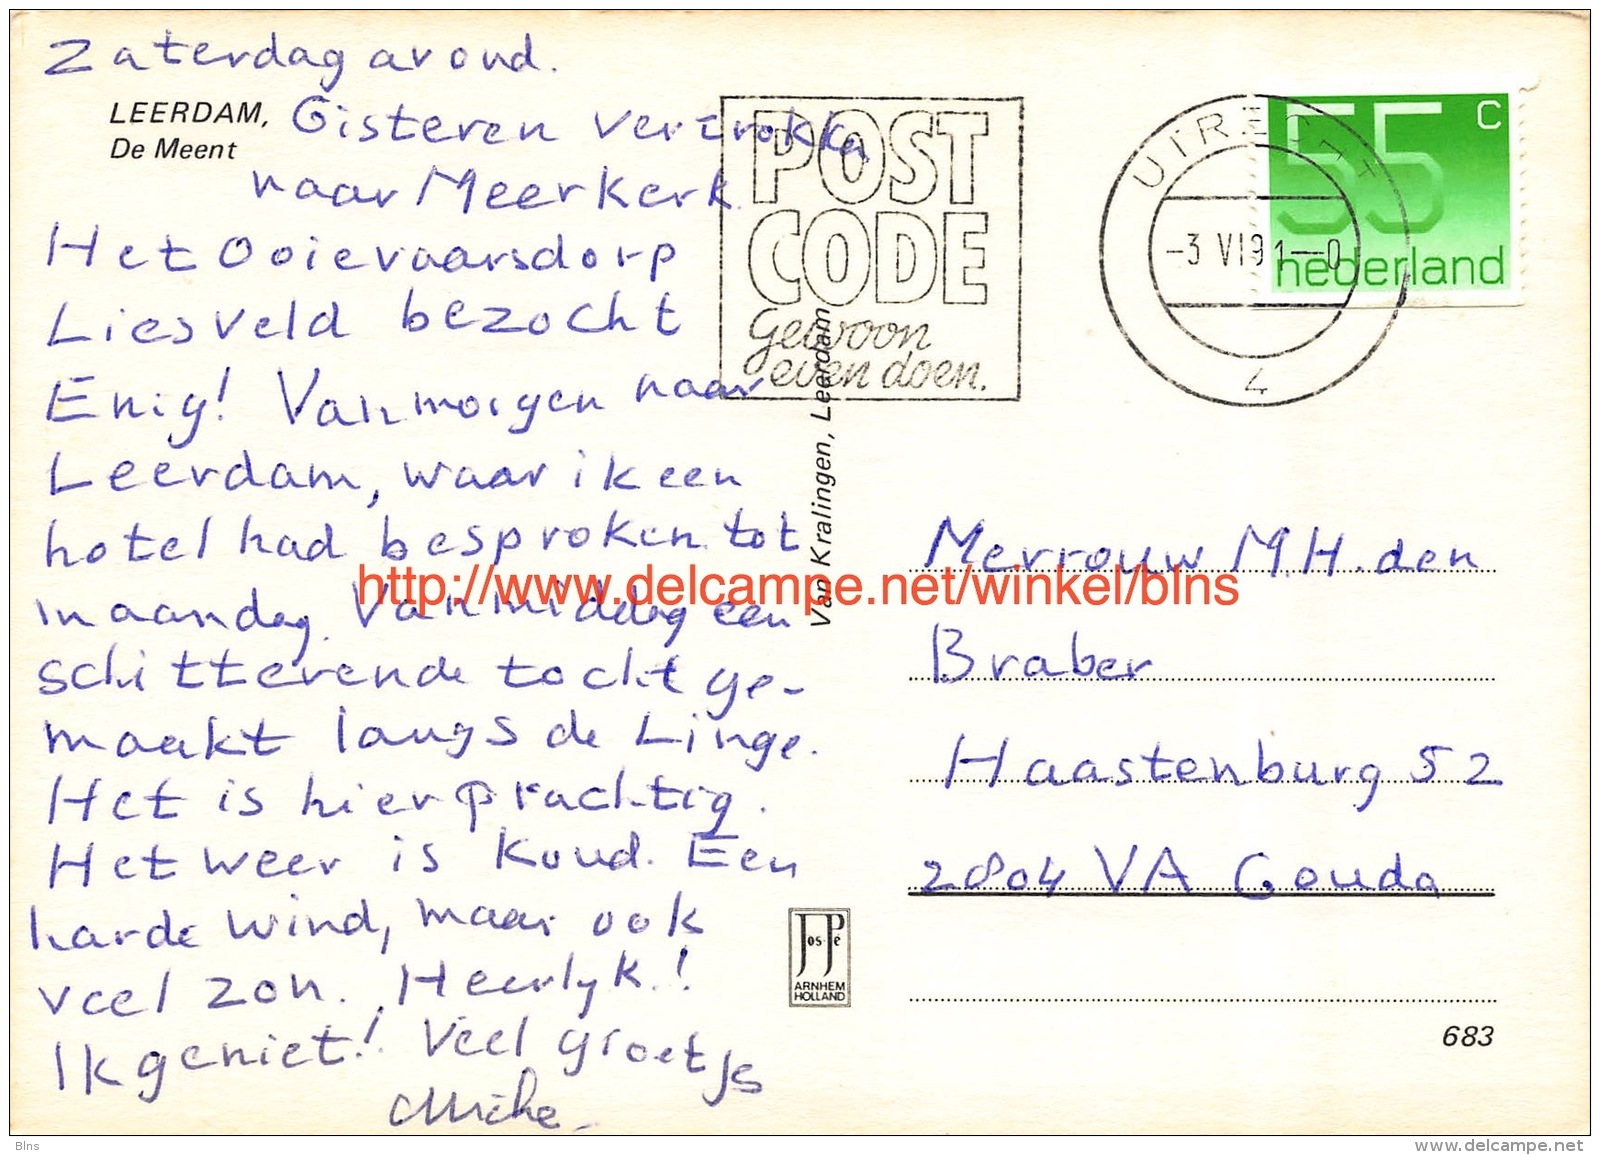 Zaterdag avond.
LEERDAM,
De Meent
Gisteren vertrokken
naar Meerkerk.
Het Ooievaarsdorp
Liesveld bezocht
Enig! Vanmorgen naar
Leerdam, waar ik een
hotel had besproken tot
maandag. Vanmiddag een
schitterende tocht ge-
maakt langs de Linge.
Het is hier prachtig.
Het weer is koud. Een
harde wind, maar ook
veel zon. Heerlyk!
Ik geniet! Veel groetjs
POST
CODE
Gewoon
even doen.
UTRECHT
-3 VI 9 1--0
4
55 c
nederland
Van Kralingen, Leerdam
http://www.delcampe.net/winkel/blns
Mevrouw M.H. den
Braber
Haastenburg 52
2804 VA Gouda
JosPé
ARNHEM
HOLLAND
683
Blns
www.delcampe.net